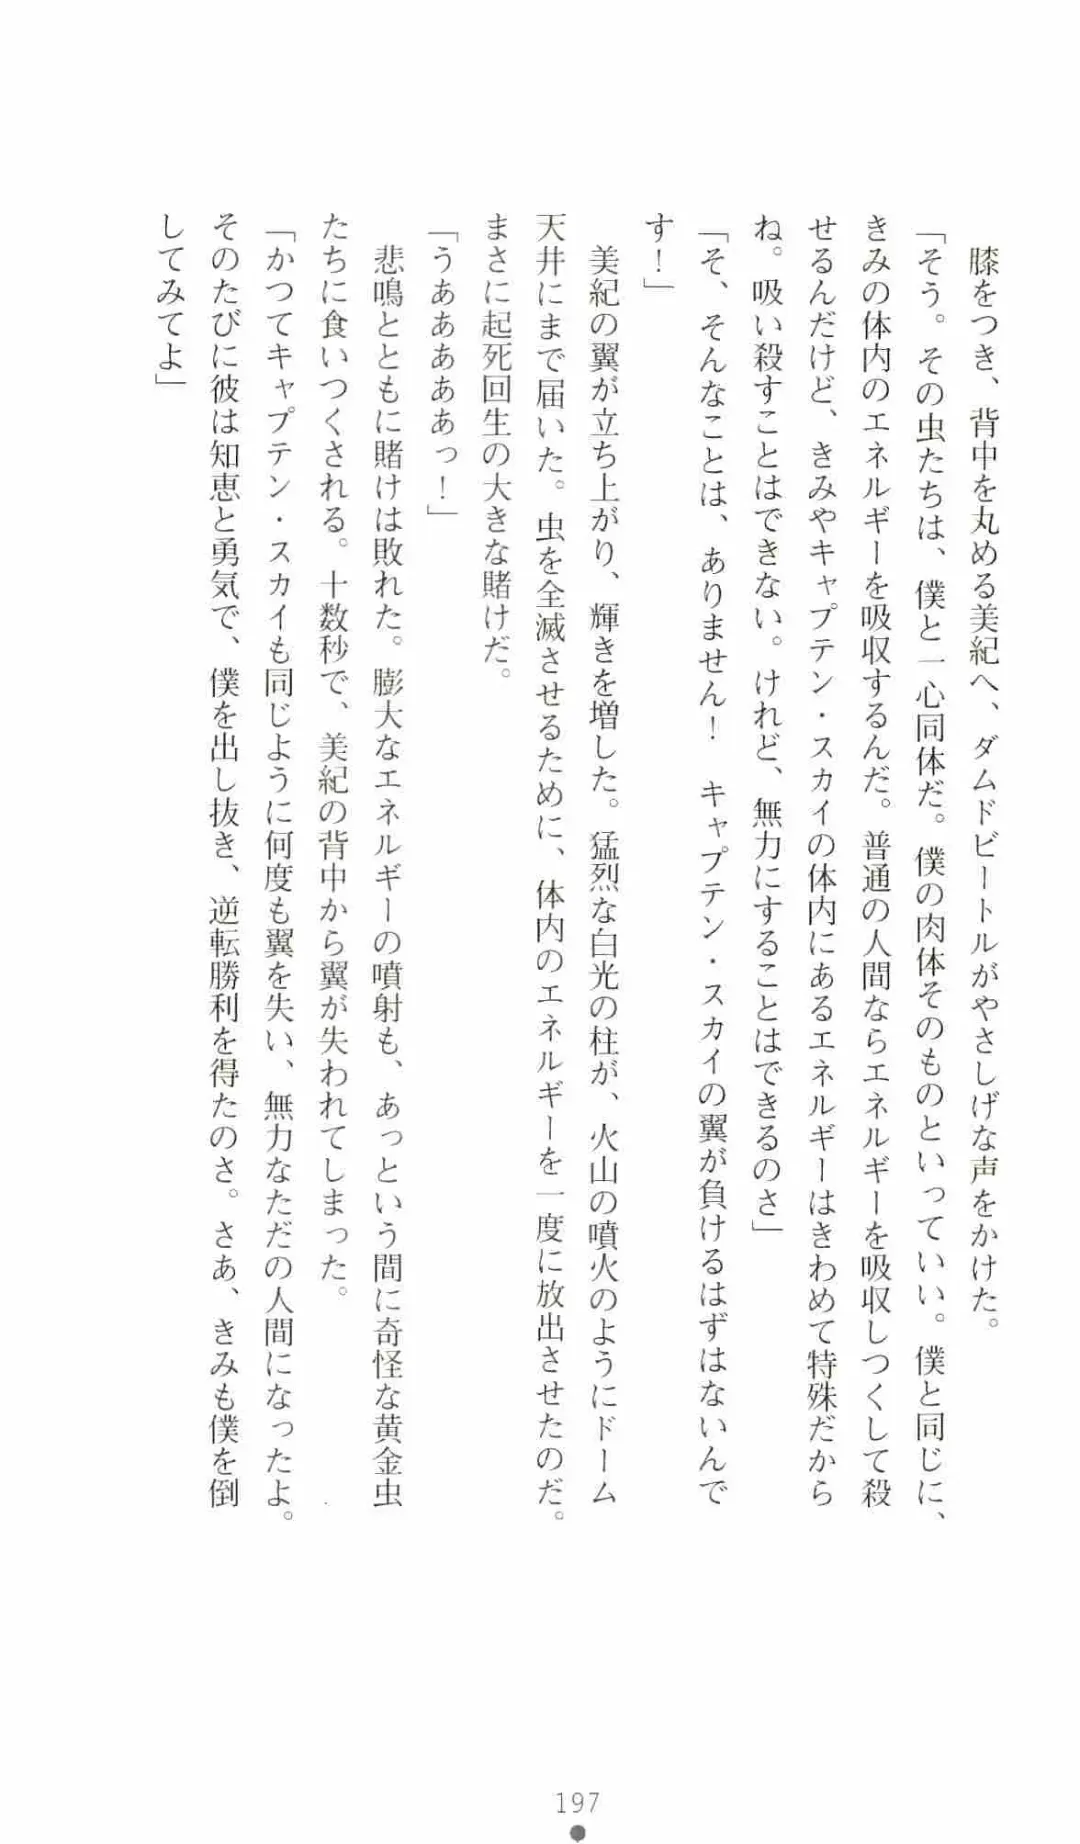 膝をつき、背中を丸める美紀へ、ダムドビートルがやさしげな声をかけた。
「そう。その虫たちは、僕と一心同体だ。僕の肉体そのものといっていい。僕と同じに、
きみの体内のエネルギーを吸収するんだ。普通の人間ならエネルギーを吸収しつくして殺
せるんだけど、きみやキャプテン・スカイの体内にあるエネルギーはきわめて特殊だから
ね。吸い殺すことはできない。けれど、無力にすることはできるのさ」
「そ、そんなことは、ありません！　キャプテン・スカイの翼が負けるはずはないんで
す！」
美紀の翼が立ち上がり、輝きを増した。猛烈な白光の柱が、火山の噴火のようにドーム
天井にまで届いた。虫を全滅させるために、体内のエネルギーを一度に放出させたのだ。
まさに起死回生の大きな賭けだ。
「うああああぁっ！」
悲鳴とともに賭けは敗れた。膨大なエネルギーの噴射も、あっという間に奇怪な黄金虫
たちに食いつくされる。十数秒で、美紀の背中から翼が失われてしまった。
「かつてキャプテン・スカイも同じように何度も翼を失い、無力なただの人間になったよ。
そのたびに彼は知恵と勇気で、僕を出し抜き、逆転勝利を得たのさ。さあ、きみも僕を倒
してみてよ」
197